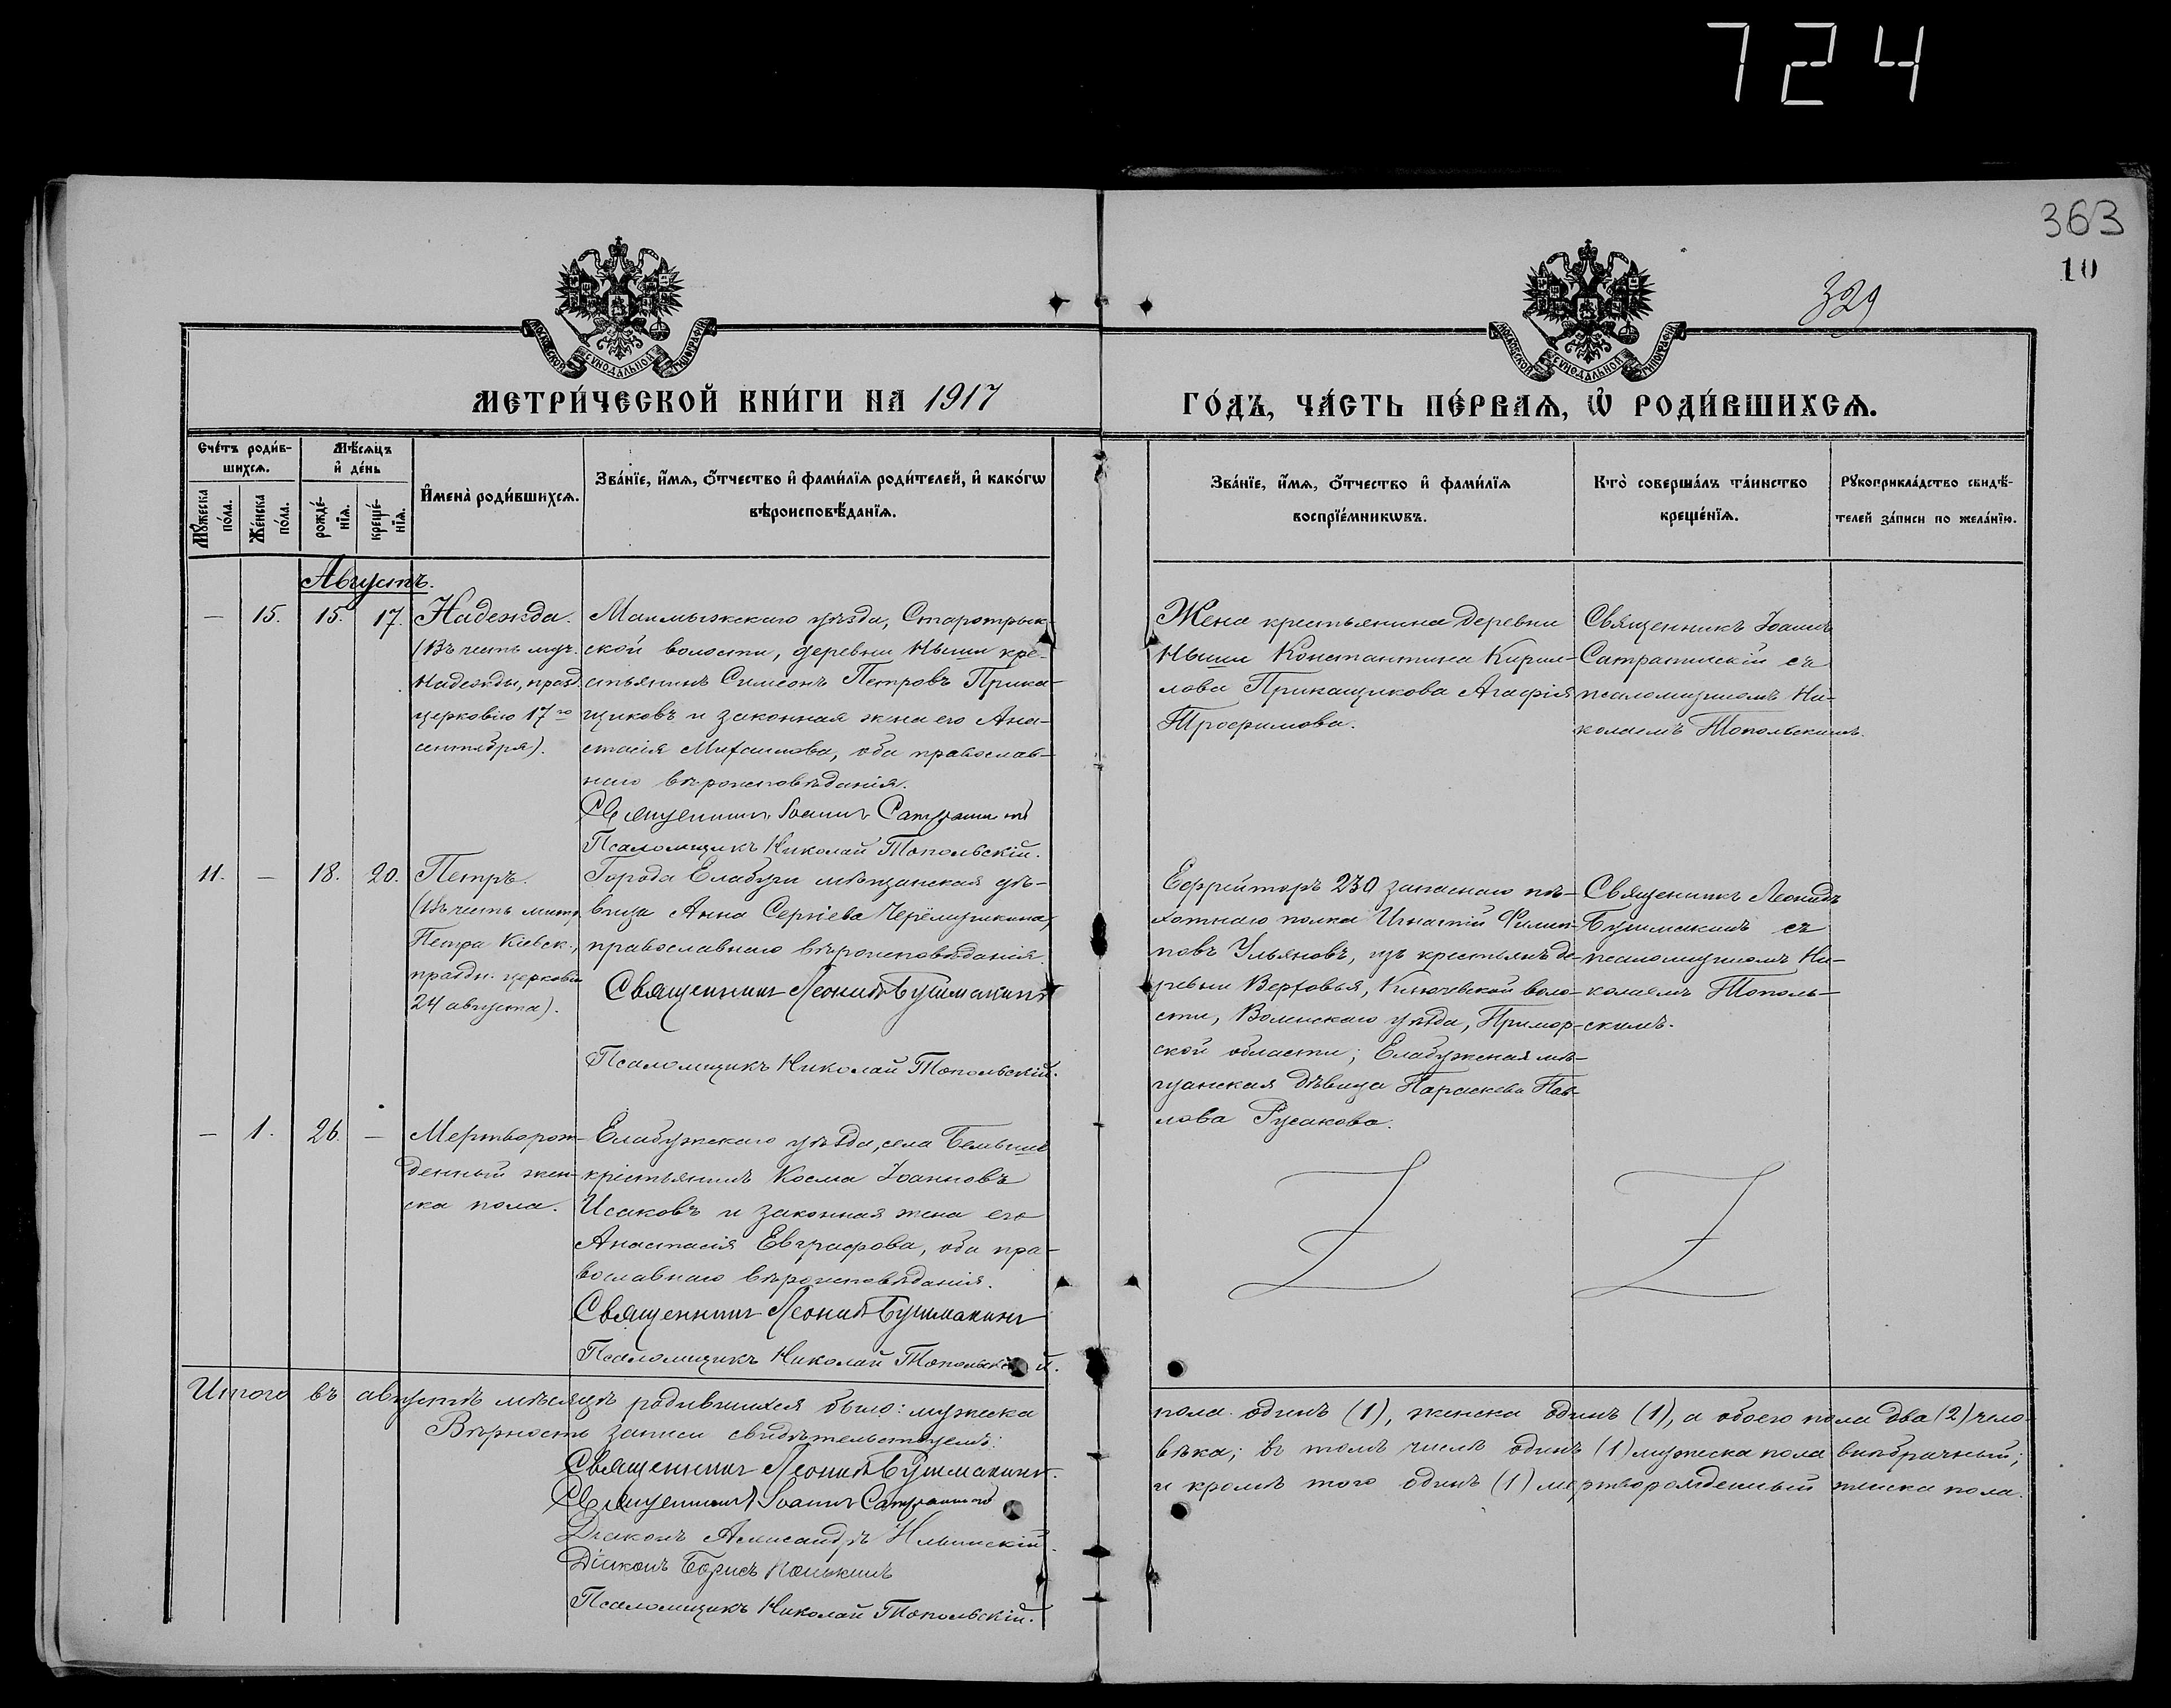 724
363
10
329
МОСКОВСКОЙ СѴНОДАЛЬНОЙ ТИПОГРАФІИ
МОСКОВСКОЙ СѴНОДАЛЬНОЙ ТИПОГРАФІИ
МЕТРИ́ЧЕСКОЙ КНИ́ГИ НА 1917
ГО́ДЪ, ЧА́СТЬ ПЕ́РВАѦ, Ѽ РОДИ́ВШИХСѦ.
Сче́тъ роди́в-
шихсѧ.
Мѣ́сѧцъ
и҆ де́нь
Мꙋ́жеска
по́ла.
Же́нска
по́ла.
рожде́-
нїѧ.
креще́-
нїѧ.
И҆мена̀ роди́вшихсѧ.
Зва́нїе, и҆́мѧ, ѻ҆́тчество и҆ фами́лїѧ роди́телей, и҆ како́гѡ
вѣроисповѣ́данїѧ.
Зва́нїе, и҆́мѧ, ѻ҆́тчество и҆ фами́лїѧ
воспрїе́мникѡвъ.
Кто̀ соверша́лъ та́инство
креще́нїѧ.
Рꙋкоприкла́дство свидѣ́-
телей за́писи по жела́нїю.
Августъ.
— 15. 15. 17.
Надежда.
(Въ честь муч.
Надежды, празд.
церковію 17го
сентября).
Малмыжскаго уѣзда, Старотрык-
ской волости, деревни Ныши кре-
стьянинъ Симеонъ Петровъ Прика-
щиковъ и законная жена его Ана-
стасія Михаилова, оба православ-
наго вѣроисповѣданія.
Священникъ Іоаннъ
Псаломщикъ Николай Топольскій.
Жена крестьянина деревни
Ныши Константина Кирил-
лова Прикащикова Агафія
Трофимова.
Священникъ Іоаннъ
Сатрапинскій съ
псаломщикомъ Ни-
колаемъ Топольскимъ.
11. — 18. 20.
Петръ.
(Въ честь митр.
Петра Кіевск.,
праздн. церковію
24 августа).
Города Елабуги мѣщанская дѣ-
вица Анна Сергіева Черёмушкина,
православнаго вѣроисповѣданія.
Священникъ Леонидъ Бушмакинъ
Псаломщикъ Николай Топольскій.
Ефрейторъ 230 запаснаго пѣ-
хотнаго полка Игнатій Филип-
повъ Ульяновъ, изъ крестьянъ де-
ревни Верховья, Ключевской воло-
сти, уѣзда, Примор-
ской области; Елабужская мѣ-
щанская дѣвица Параскева Пав-
лова Русакова.
Священникъ Леонидъ
Бушмакинъ съ
псаломщикомъ Ни-
колаемъ Тополь-
скимъ.
— 1. 26. —
Мертворож-
денный жен-
ска пола.
Елабужскаго уѣзда, села
крестьянинъ Косма Іоанновъ
Исаковъ и законная жена его
Анастасія Евграфова, оба пра-
вославнаго вѣроисповѣданія.
Священникъ Леонидъ Бушмакинъ
Псаломщикъ Николай Топольскій.
Итого въ августѣ мѣсяцѣ родившихся было: мужеска
пола одинъ (1), женска одинъ (1), а обоего пола два (2) чело-
вѣка; въ томъ числѣ одинъ (1) мужеска пола внѣбрачный;
и кромѣ того одинъ (1) мертворожденный женска пола.
Вѣрность записи свидѣтельствуемъ:
Священникъ Леонидъ Бушмакинъ.
Священникъ Іоаннъ
Діаконъ Александръ Ильинскій.
Діаконъ Борисъ
Псаломщикъ Николай Топольскій.